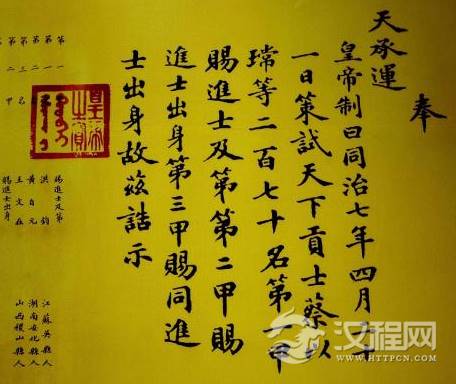 奉
天承運
皇帝制曰同治七年四月二十
一日策試天下貢士蔡以
瑺等二百七十名第一甲
賜進士及第第二甲賜
進士出身第三甲賜同進
士出身故茲誥示
皇帝之寶
第一 賜進士及第
第一 洪鈞 江蘇吳縣人
第二 黃自元 湖南安化縣人
第三名 王文在 山西稷山縣人
第二甲 賜進士出身
汉程网
HTTPCN.COM